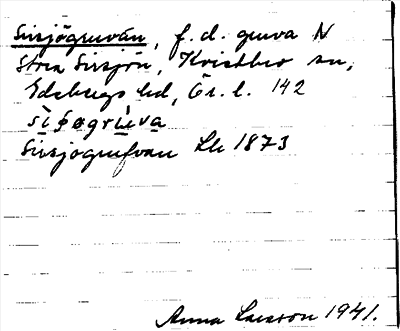 Sirsjögruvan, f. d. gruva N
Stora Sirsjön, Kvistbro sn,
Edsbergs hd, Ör. l. 142
Sirsjögrufvan Lk 1873
Anna Larsson 1941.